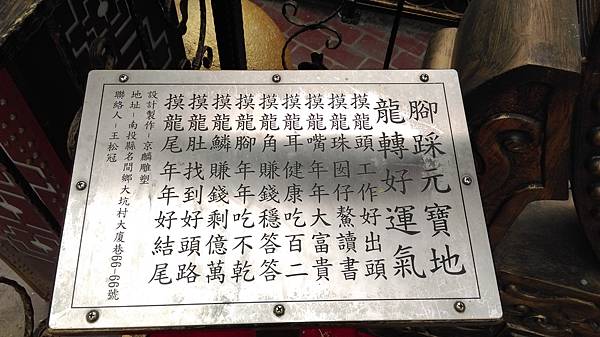 腳踩元寶地
龍轉好運氣
摸龍頭工作好出頭
摸龍珠囡仔鰲讀書
摸龍嘴年年大富貴
摸龍耳健康吃百二
摸龍角賺錢穩答答
摸龍腳年年吃不乾
摸龍鱗賺錢剩億萬
摸龍肚找到好頭路
摸龍尾年年好結尾
設計製作－京麟雕塑
地址－南投縣名間鄉大坑村大廈巷66-66號
聯絡人－王松冠